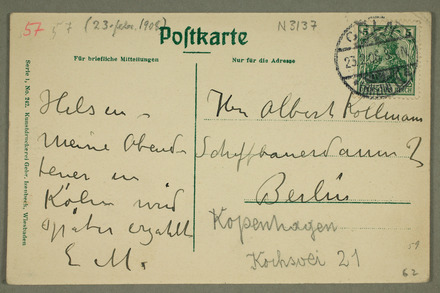 57
57
(23. Febr. 1908)
N3137
Postkarte
Für briefliche Mitteilungen
Nur für die Adresse
CÖLN
Serie 1, No. 242. Kunstdruckerei Gebr. Isenbeck, Wiesbaden
Helsen –
meine Abend
teuer in
Köln wird
später erzählt
E M.
Herr Albert Kollmann
Schiffbauerdamm 2
Berlin
Kopenhagen
Kochsvei 21
59
62